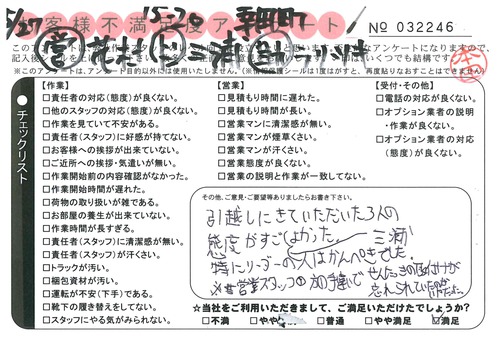 5/27
15-20
お客様不満足度アンケート
No 032246
営
三浦
本
記入後
いくつでも結構です
※このアンケートは、アンケート目的以外にはいたしません。(※情報保護シールは1度はがすと、再度貼りなおすことはできません)
チェックリスト
【作業】
□責任者の対応(態度)が良くない。
□他のスタッフの対応(態度)が良くない。
□作業を見ていて不安がある。
□責任者(スタッフ)に好感が持てない。
□お客様への挨拶が出来ていない。
□ご近所への挨拶・気遣いが無い。
□作業開始前の内容確認がなかった。
□作業開始時間が遅れた。
□荷物の取り扱いが雑である。
□お部屋の養生が出来ていない。
□作業時間が長すぎる。
□責任者(スタッフ)に清潔感が無い。
□責任者(スタッフ)が汗くさい。
□トラックが汚い。
□梱包資材が汚い。
□運転が不安(下手)である。
□靴下の履き替えをしてない。
□スタッフにやる気がみられない。
【営業】
□見積もり時間に遅れた。
□見積もり時間が長い。
□営業マンに清潔感が無い。
□営業マンが煙草くさい。
□営業マンが汗くさい。
□営業態度が良くない。
□営業の説明と作業が一致してない。
【受付・その他】
□電話の対応が良くない。
□オプション業者の説明・作業が良くない。
□オプション業者の対応(態度)が良くない。
その他、ご意見・ご要望等ありましたらお書き下さい。
引越しにきていただいた3人の
態度がすごくよかった。 三浦
特にリーダーの人はかんぺきでした。
※営業スタッフの加手違いで せんたっきの取付けが
忘れられていたのが
☆当社をご利用いただきまして、ご満足いただけたでしょうか?
□不満 □やや不満 □普通 □やや満足 ☑満足